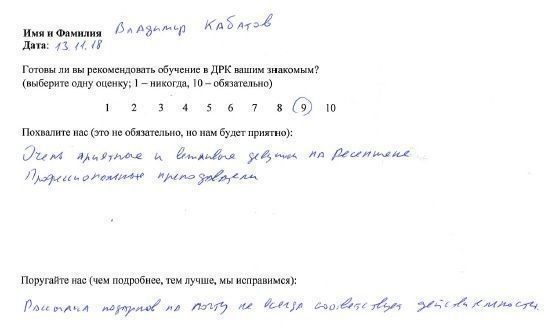 Имя и Фамилия Владимир Кабатов
Дата: 13.11.18
Готовы ли вы рекомендовать обучение в ДРК вашим знакомым?
(выберите одну оценку; 1 – никогда, 10 – обязательно)
1 2 3 4 5 6 7 8 9 10
Похвалите нас (это не обязательно, но нам будет приятно):
Очень приятные и вежливые девушки на ресепшене.
Профессиональные преподаватели
Поругайте нас (чем подробнее, тем лучше, мы исправимся):
Рассылка на почту не всегда соответствует действительности